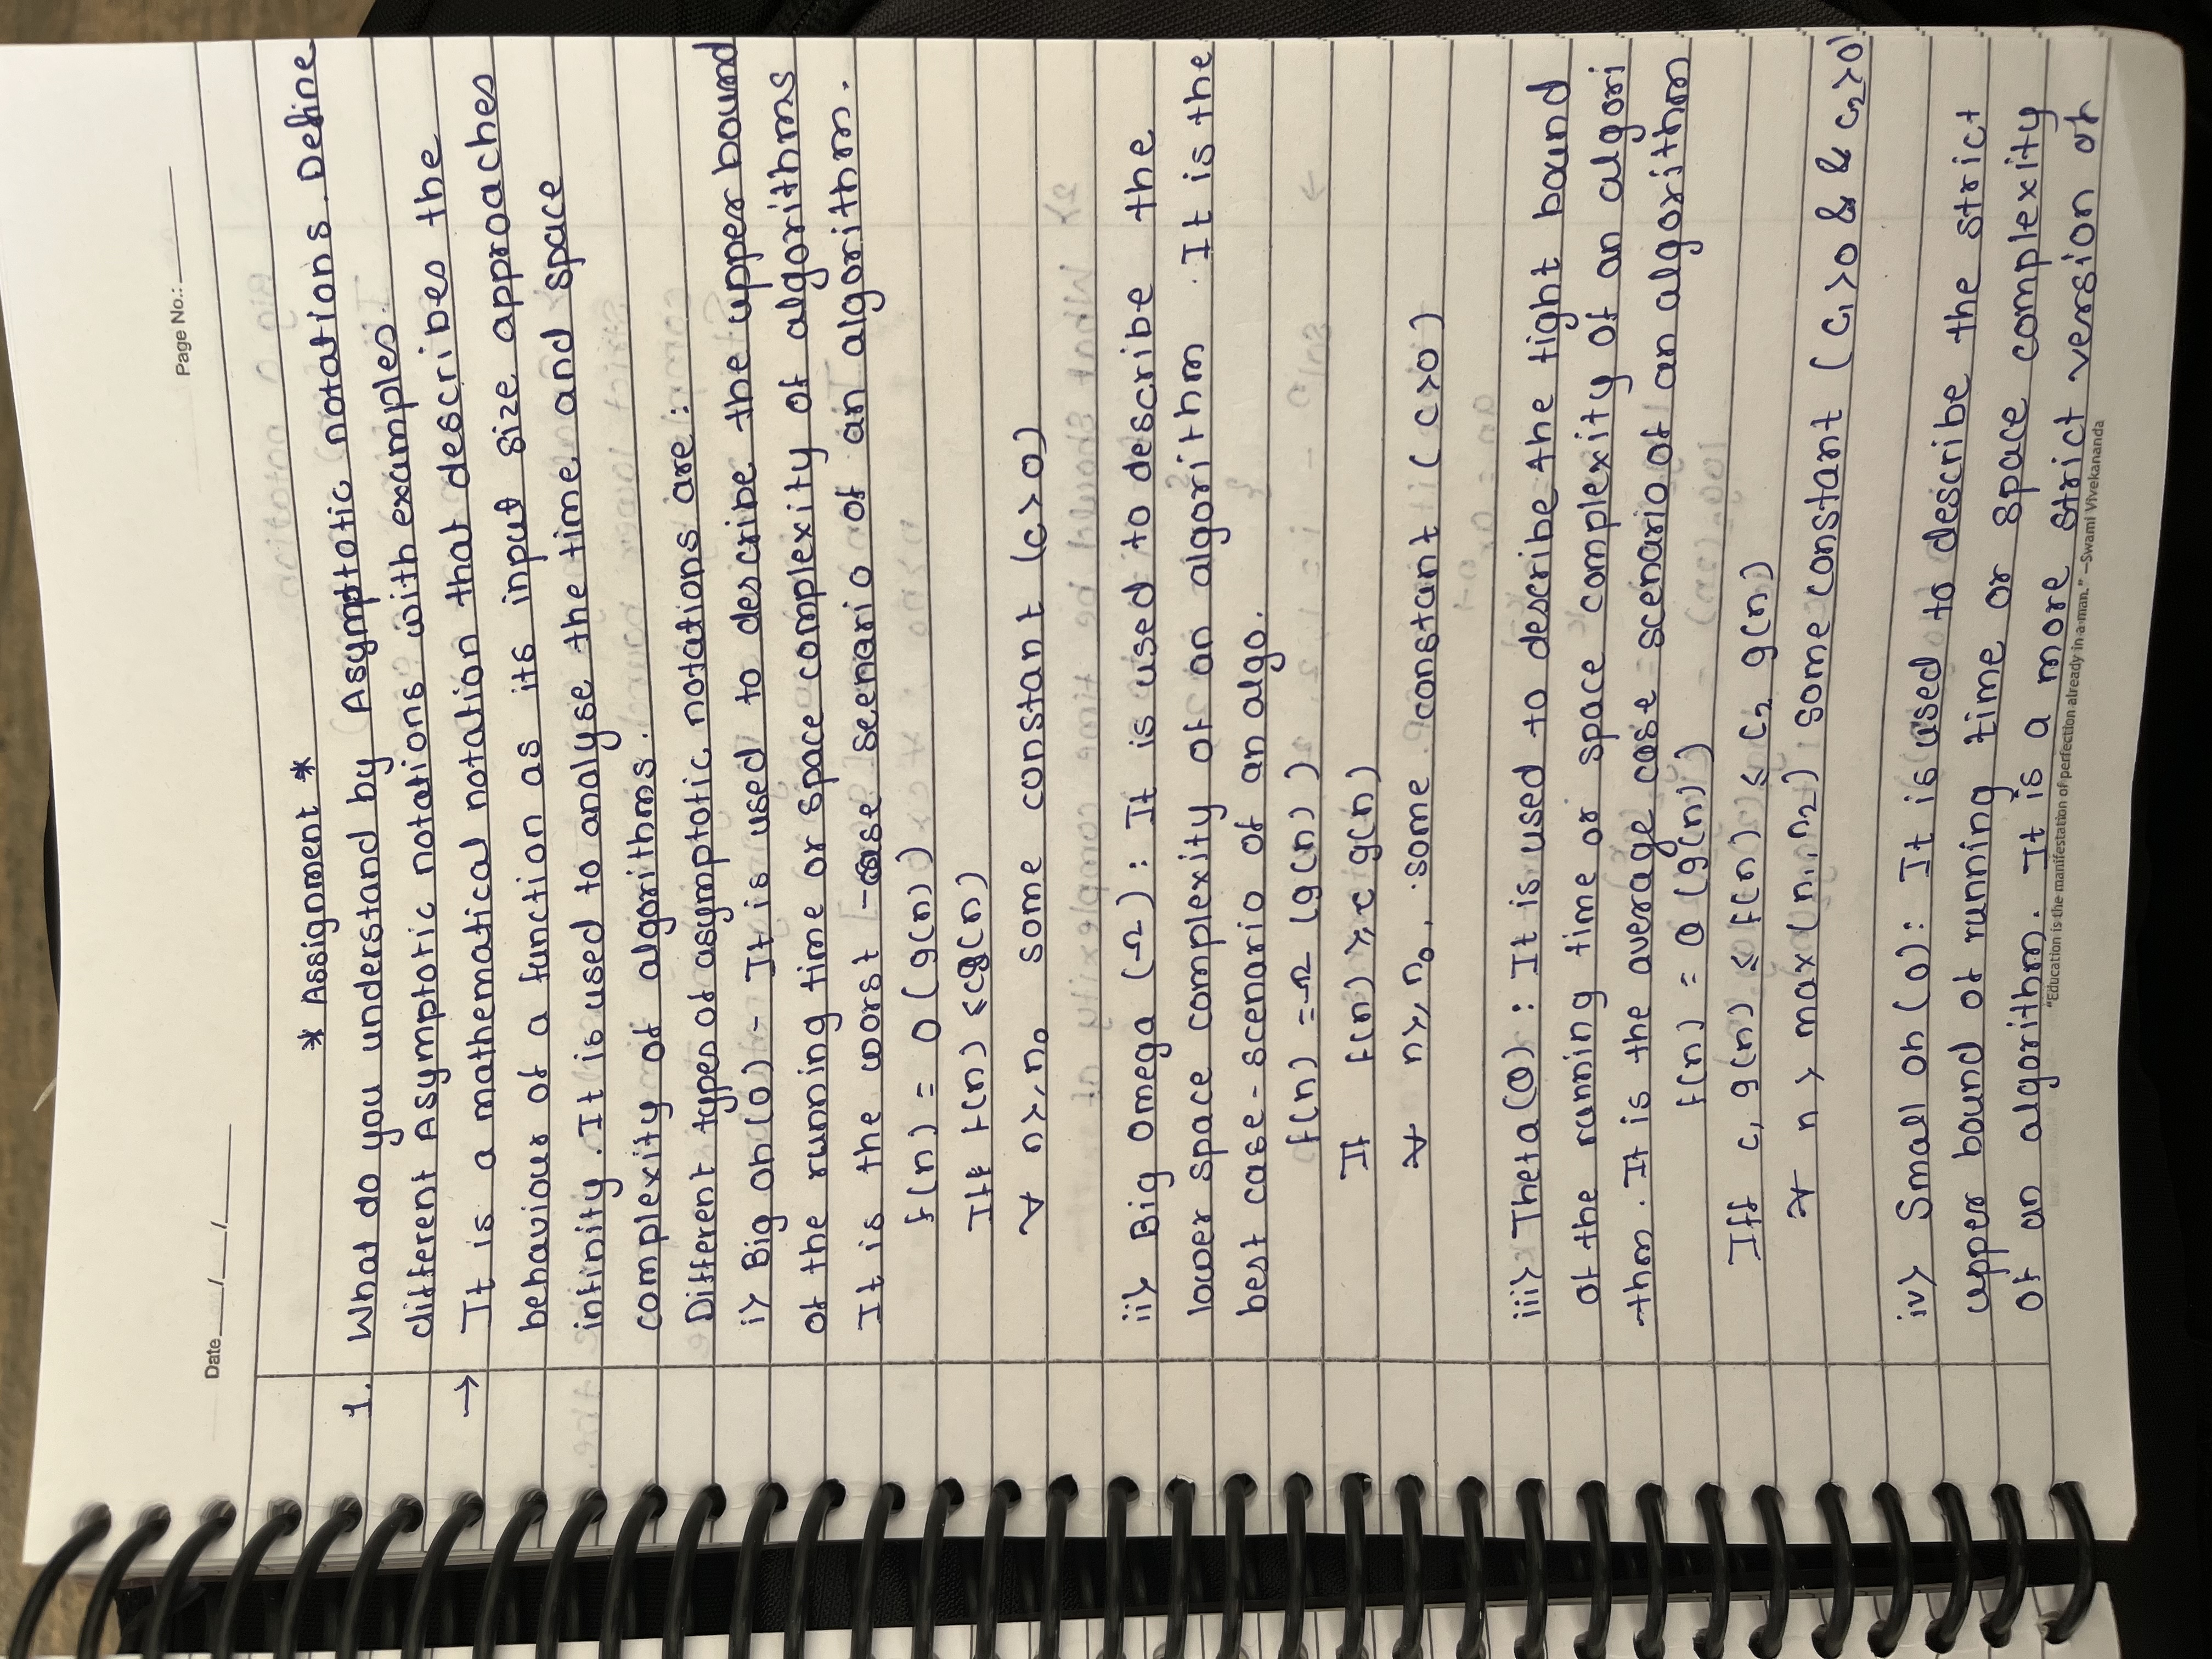 Page No.:
Date / /
* Assignment *
1. What do you understand by Asymptotic notations. Define
different Asymptotic notations with examples.
→ It is a mathematical notation that describes the
behaviour of a function as its input size approaches
infinity. It is used to analyse the time and space
complexity of algorithms.
Different types of asymptotic notations are:
i> Big oh (O) - It is used to describe the upper bound
of the running time or space complexity of algorithms
It is the worst -case seenario of an algorithm.
f(n) = O(g(n))
Iff f(n) ≤ cg(n)
∀ n ≥ n₀ some constant (c>0)
ii> Big Omega (Ω) : It is used to describe the
lower space complexity of an algorithm. It is the
best case-scenario of an algo.
f(n) = Ω (g(n))
If f(n) ≥ c g(n)
∀ n ≥ n₀, some constant (c>0)
iii> Theta (θ) : It is used to describe the tight bound
of the running time or space complexity of an algori
-thm. It is the average case scenario of an algorithm
f(n) = θ (g(n))
Iff c₁ g(n) ≤ f(n) ≤ c₂ g(n)
∀ n > max(n₁, n₂) some constant (c₁>0 & & c₂>0)
iv> Small oh (o): It is used to describe the strict
upper bound of running time or space complexity
of an algorithm. It is a more strict version of
"Education is the manifestation of perfection already in a man." –Swami Vivekananda